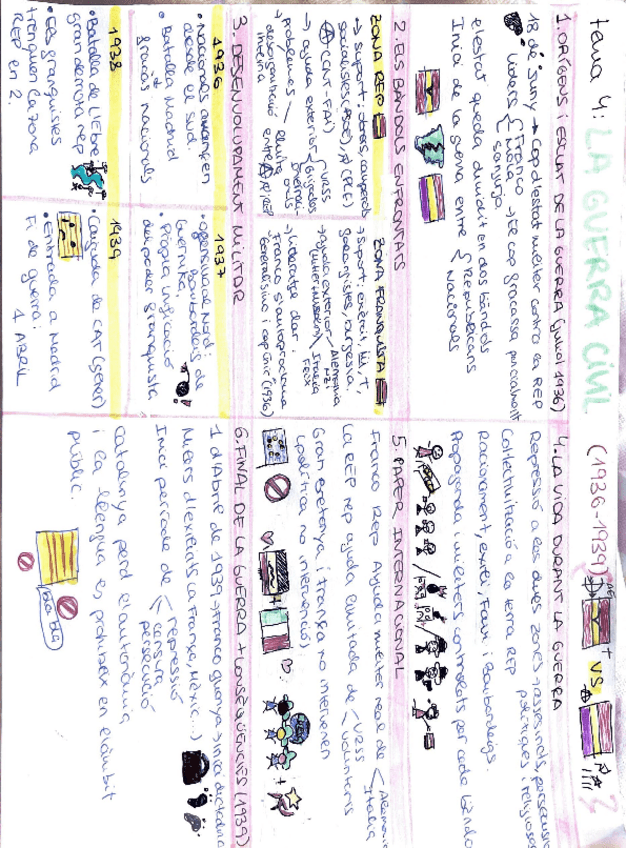 tema 4: LA GUERRA CIVIL (1936-1939)
VS
1. ORÍGENS I ESCLAT DE LA GUERRA (juliol 1936)
18 de juny → Cop d'estat militar contra la REP
líders { Franco
Mola
Sanjurjo
→ El cop fracassa parcialment
el estat queda dividit en dos bàndols
Inici de la guerra entre { Republicans
Nacionals
2. ELS BÀNDOLS ENFRONTATS
ZONA REP
→ suport: obrers, camperols
socialistes (PSOE),
(CNT-FAI)
→ ajuda exterior URSS
Brigades
problemes
→ desorganització
interna
ZONA FRANQUISTA
→ suport: exèrcit,
burgesia
→ ajuda exterior Alemania
(Hitler i Mussolini) Italia
→ lideratge clar
Franco s'autoproclama
Generalísimo i cap únic (1936)
3. DESENVOLUPAMENT MILITAR
1936
• Nacionals avancen
desde el sud
• Batalla Madrid
1937
• ofensiva al Nord:
Bombardeig de
Guernika
• Pròpia unificació
del poder franquista
1938
• Batalla de l'Ebre
gran derrota rep
• Els franquistes
trenquen la zona
REP en 2.
1939
• Caiguda de CAT (gener)
• Entrada a Madrid
Fi de guerra:
1 ABRIL
4. LA VIDA DURANT LA GUERRA
Repressió a les dues zones → assesinats, persecusio
polítiques i religioses
Colectivització a la terra REP
Racionament, exili, Fam i Bombardeigs.
Propaganda i militers controlats per cada bàndol
5. PAPER INTERNACIONAL
Franco Rep Ajuda militer real de Alemania
Italia
La REP rep ajuda limitada de URSS
voluntaris
Gran Bretanya i França no intervenen
(política no intervenció)
6. FINAL DE LA GUERRA + CONSEQÜÈNCIES (1939)
1 d'Abril de 1939 → Franco guanya → inici dictadura
Milers d'exiliats (a França, Mèxic...)
Inici període de repressió
censura
persecució
Catalunya perd el autonòmia
i la llengua es prohibeix en el àmbit
públic.
bla bla